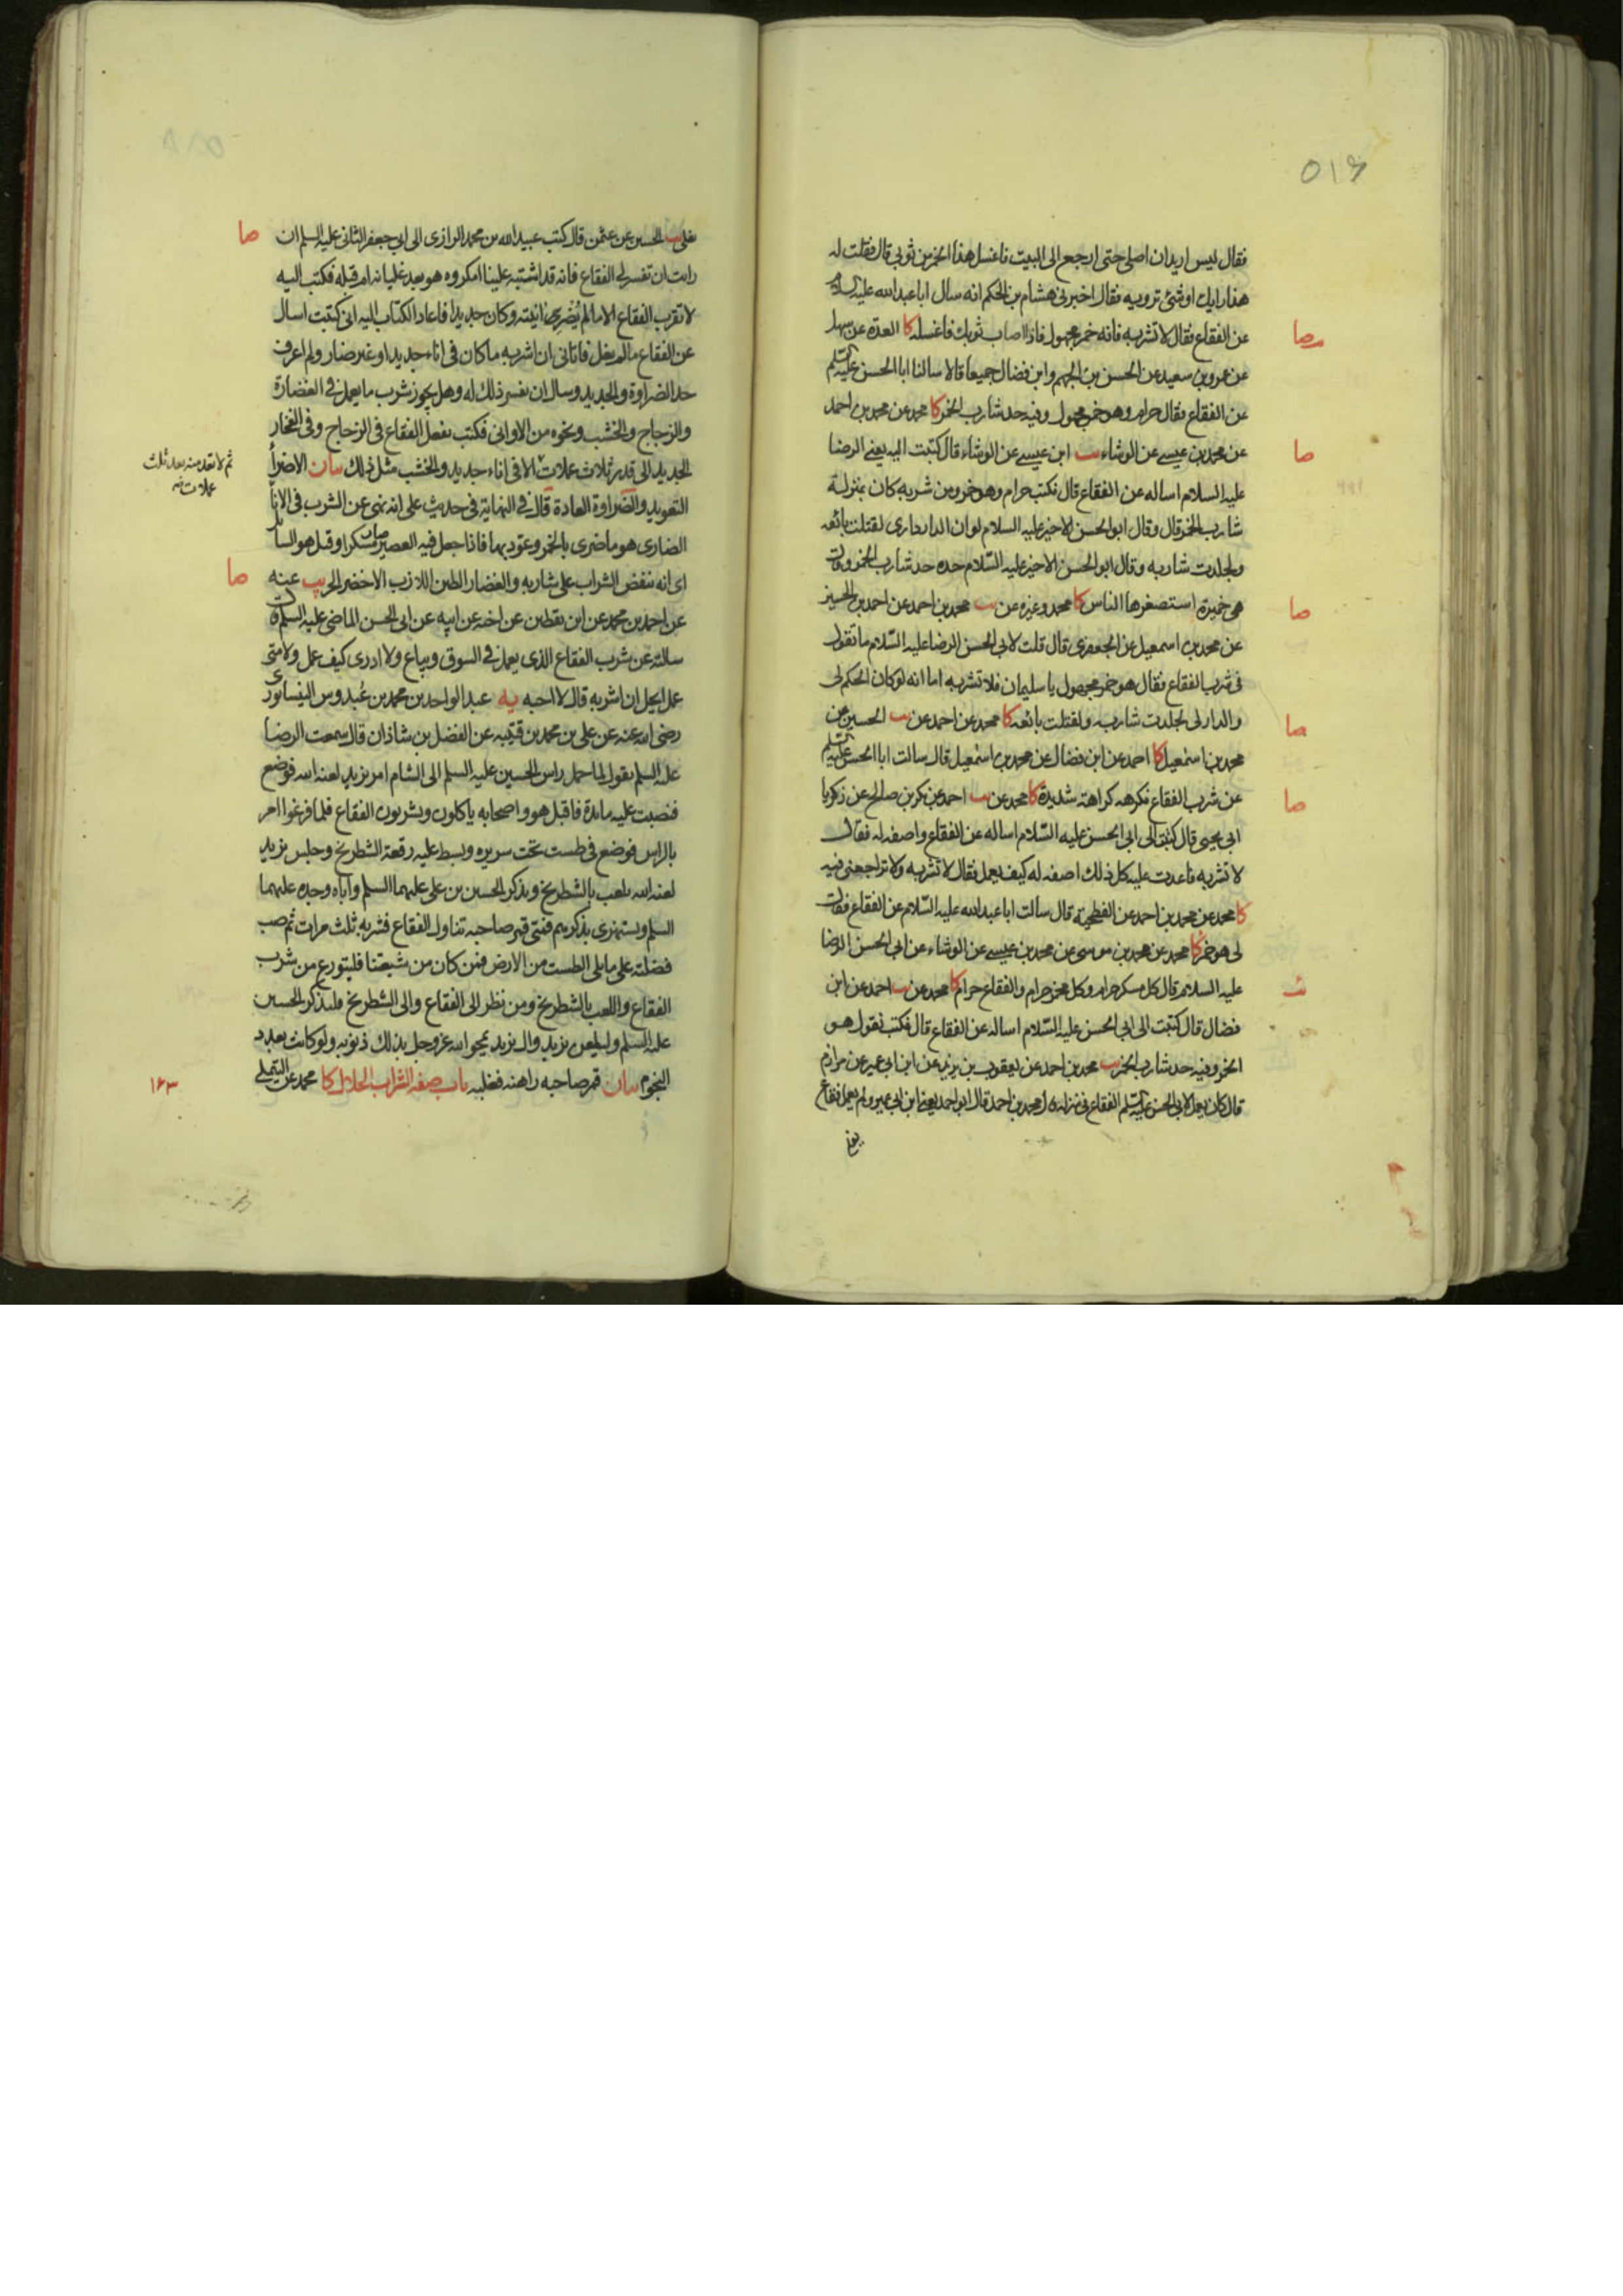 ٥١٦
فقال ليس اريد ان اصلى حتى ارجع الى البيت فاغسل هذا الخمر من ثوبى قال فقلت له
هذا رايك او شئ ترويه فقال اخبرنى هشام بن الحكم انه سال ابا عبد الله عليه السلام
عن الفقاع فقال لا تشربه فانه خمر مجهول فاذا اصاب ثوبك فاغسله كا العدة عن سهل
عن عمرو بن سعيد عن الحسن بن الجهم وابن فضال جميعا قالا سالنا ابا الحسن عليه السلم
عن الفقاع فقال حرام وهو خمر مجهول وفيه حد شارب الخمر كا محمد عن محمد بن احمد
عن محمد بن عيسى عن الوشاء يب ابن عيسى عن الوشاء قال كتبت اليه يعنى الرضا
عليه السلام اساله عن الفقاع قال فكتب حرام وهو خمر ومن شربه كان بمنزلة
شارب الخمر قال وقال ابو الحسن الاخير عليه السلام لو ان الدار دارى لقتلت بائعه
ولجلدت شاربه وقال ابو الحسن الاخير عليه السّلام حده حد شارب الخمر وقال
هى خميرة استصغرها الناس كا محمد وغيره عن يب محمد بن احمد عن احمد بن الحسين
عن محمد بن اسمعيل عن الجعفرى قال قلت لابى الحسن الرضا عليه السّلام ما تقول
فى شرب الفقاع فقال هو خمر مجهول يا سليمان فلا تشربه اما انه لو كان الحكم لى
والدار لى لجلدت شاربه ولقتلت بائعه كا محمد عن احمد عن يب الحسين عن
محمد بن اسمعيل كا احمد عن ابن فضال عن محمد بن اسمعيل قال سالت ابا الحسن عليه السلم
عن شرب الفقاع فكرهه كراهة شديدة كا محمد عن يب احمد عن بكر بن صالح عن زكريا
ابى يحيى قال كتبت الى ابى الحسن عليه السّلام اساله عن الفقاع واصفه له فقال
لا تشربه فاعدت عليه كل ذلك اصفه له كيف يعمل فقال لا تشربه ولا تراجعنى فيه
كا محمد عن محمد بن احمد عن الفطحية قال سألت ابا عبد الله عليه السّلام عن الفقاع فقال
لى هو خمر كا محمد عن محمد بن موسى عن محمد بن عيسى عن الوشاء عن ابى الحسن الرضا
عليه السلام قال كل مسكر حرام وكل مخمر حرام والفقاع حرام كا محمد عن يب احمد عن ابن
فضال قال كتبت الى ابى الحسن عليه السّلام اساله عن الفقاع قال فكتب يقول هو
الخمر وفيه حد شارب الخمر يب محمد بن احمد عن يعقوب بن يزيد عن ابن ابى عمير عن مرازم
قال كان يعمل لابى الحسن عليه السلم الفقاع فى منزله قال محمد بن احمد قال ابو احمد يعنى ابن ابى عمير ولم يعمل فقاع
يغلى
صا
صا
صا
صا
صا
يغلى يب الحسين عن عثمن قال كتب عبيد الله بن محمد الرازى الى ابى جعفر الثانى عليه السلم ان
رايت ان تفسر لى الفقاع فانه قد اشتبه علينا امكروه هو بعد غليانه ام قبله فكتب اليه
لا تقرب الفقاع الا ما لم يُضْرِ انيته وكان جديدا فاعاد الكتاب اليه انى كتبت اسال
عن الفقاع ما لم يغل فاتانى ان اشربه ما كان فى اناء جديد او غير ضار ولم اعرف
حد الضراوة والجديد وسال ان يفسر ذلك له وهل يجوز شرب ما يعمل فى الغضارة
والزجاج والخشب ونحوه من الاوانى فكتب يفعل الفقاع فى الزجاج وفى الفخار
الجديد الى قدر ثلاث عملات الا فى اناء جديد والخشب مثل ذلك بيان الاضرأ
التعويد والضراوة العادة قال فى النهاية فى حديث على انه نهى عن الشرب فى الانا
الضارى هو ما ضرى بالخمر وعود بها فاذا جعل فيه العصير صار مسكرا وقيل هو السائل
اى انه ينغض الشراب على شاربه والغضار الطين اللازب الاخضر الحر يب عنه
عن احمد بن محمد عن ابن يقطين عن اخيه عن ابيه عن ابى الحسن الماضى عليه السلم قال
سالته عن شرب الفقاع الذى يعمل فى السوق ويباع ولا ادرى كيف عمل ولا متى
عمل ايحل ان اشربه قال لا احبه يه عبد الواحد بن محمد بن عُبدوس النيسابورى
رضى الله عنه عن على بن محمد بن قتيبه عن الفضل بن شاذان قال سمعت الرضا
عليه السلم يقول لما حمل راس الحسين عليه السلم الى الشام امر يزيد لعنه الله فوضع
فنصبت عليه مائدة فاقبل هو واصحابه ياكلون ويشربون الفقاع فلما فرغوا امر
بالراس فوضع فى طست تحت سريره وبسط عليه رقعة الشطرنج وجلس يزيد
لعنه الله يلعب بالشطرنج ويذكر الحسين بن على عليهما السلم واباه وجده عليهما
السلم ويستهزى بذكرهم فمتى قمر صاحبه تناول الفقاع فشربه ثلث مرات ثم صب
فضلته على ما يلى الطست من الارض فمن كان من شيعتنا فليتورع من شرب
الفقاع واللعب بالشطرنج ومن نظر الى الفقاع والى الشطرنج فليذكر الحسين
عليه السلم وليلعن يزيد وال يزيد يمحو الله عز وجل بذلك ذنوبه ولو كانت بعدد
النجوم بيان قمر صاحبه راهنه فغلبه باب صفة الشراب الحلال كا محمد عن التيملى
صا
ثم لا تعد منه بعد ثلث
عملات
صا
١٦٣